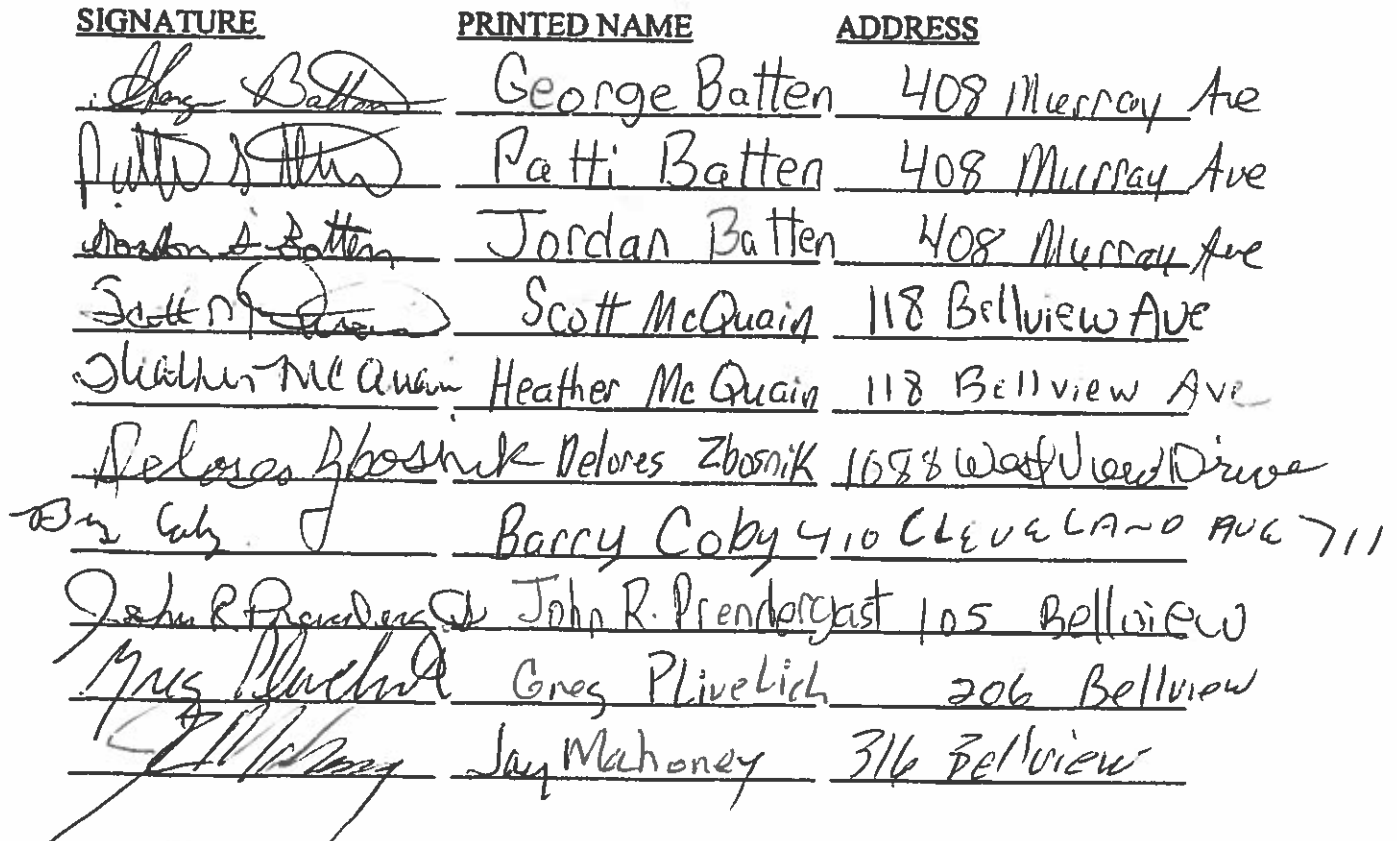 SIGNATURE PRINTED NAME ADDRESS
George Batten 408 Murray Ave
Patti Batten 408 Murray Ave
Jordan S Batten Jordan Batten 408 Murray Ave
Scott Scott McQuain 118 Bellview Ave
Heather McQuain Heather McQuain 118 Bellview Ave
Delores Zbosnik Delores Zbosnik 1688 West View Drive
Barry Coby 410 CLEVELAND AVE 711
John R Prendergast John R. Prendergast 105 Bellview
Greg Plivelich Greg PLiveLich 206 Bellview
Jay Mahoney 316 Bellview